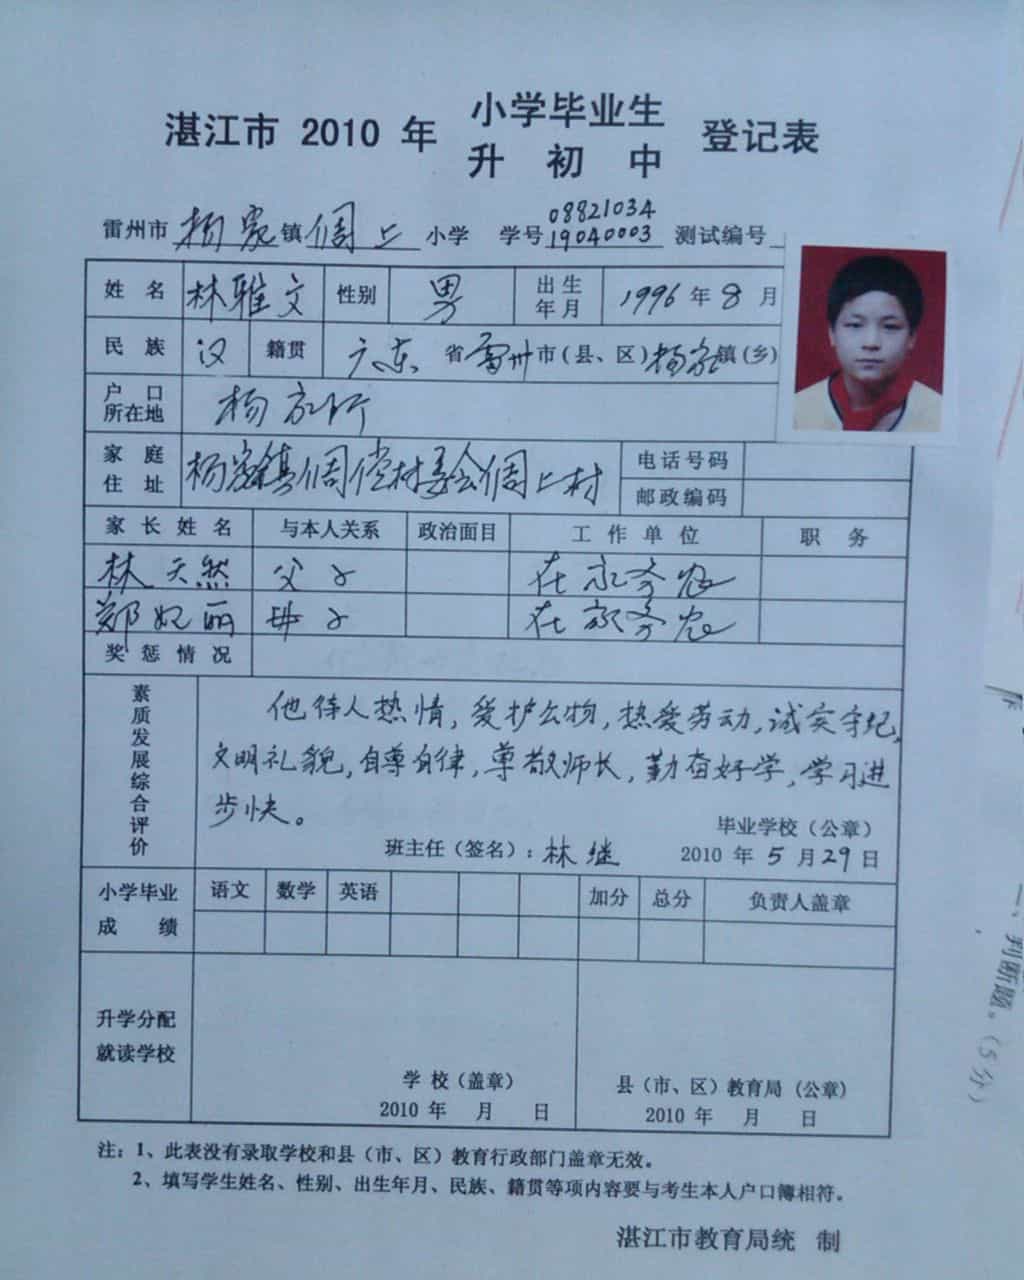 湛江市 2010 年 小学毕业生 登记表
升 初 中
08821034
雷州市 杨家 镇 倜上 小学 学号 19040003 测试编号
姓 名 林雅文 性别 男 出生年月 1996 年 8 月
民 族 汉 籍贯 广东 省 雷州 市(县、区) 杨家 镇(乡)
户 口 所在地 杨家
家 庭 住 址 杨家镇 村委会倜上村 电话号码
邮政编码
家 长 姓 名 与本人关系 政治面目 工 作 单 位 职 务
林天然 父子 在家务农
郑妃丽 母子 在家务农
奖 惩 情 况
素质发展综合评价
他待人热情,爱护公物,热爱劳动,诚实守纪,
文明礼貌,自尊自律,尊敬师长,勤奋好学,学习进
步快。
毕业学校(公章)
班主任(签名):林继 2010 年 5 月 29 日
小学毕业 语文 数学 英语 加分 总分 负责人盖章
成 绩
升学分配
就读学校
学 校(盖章) 县(市、区)教育局(公章)
2010 年 月 日 2010 年 月 日
注:1、此表没有录取学校和县(市、区)教育行政部门盖章无效。
2、填写学生姓名、性别、出生年月、民族、籍贯等项内容要与考生本人户口簿相符。
湛江市教育局统 制
一、判断题。(5分)